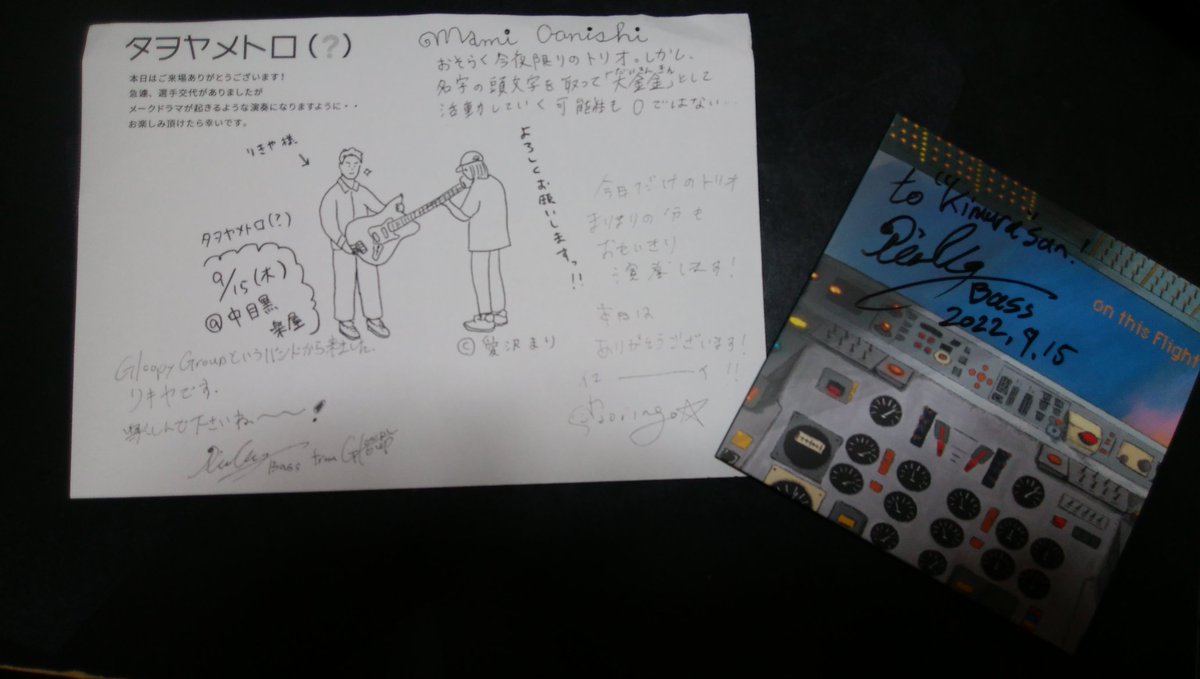 タヲヤメトロ(?)
本日はご来場ありがとうございます!
急遽、選手交代がありましたが
メークドラマが起きるような演奏になりますように・・
お楽しみ頂けたら幸いです。
Mami Oanishi
おそらく今夜限りのトリオ。しかし、
名字の頭文字を取って「大釜金」として
活動していく可能性も0ではない…
りきや様
よろしくお願いしますっ!!
タヲヤメトロ(?)
9/15(木)
@中目黒
楽屋
©愛沢まり
今日だけのトリオ
まりはりの分も
おもいきり
演奏します!
本日は
ありがとうございます!
イエーーーイ!!
Gloopy Groupというバンドから来ました、
リキヤです。
楽しんで下さいね〜〜!
Bass from
to "Kimura"san!
Bass
2022.9.15
on this Flight